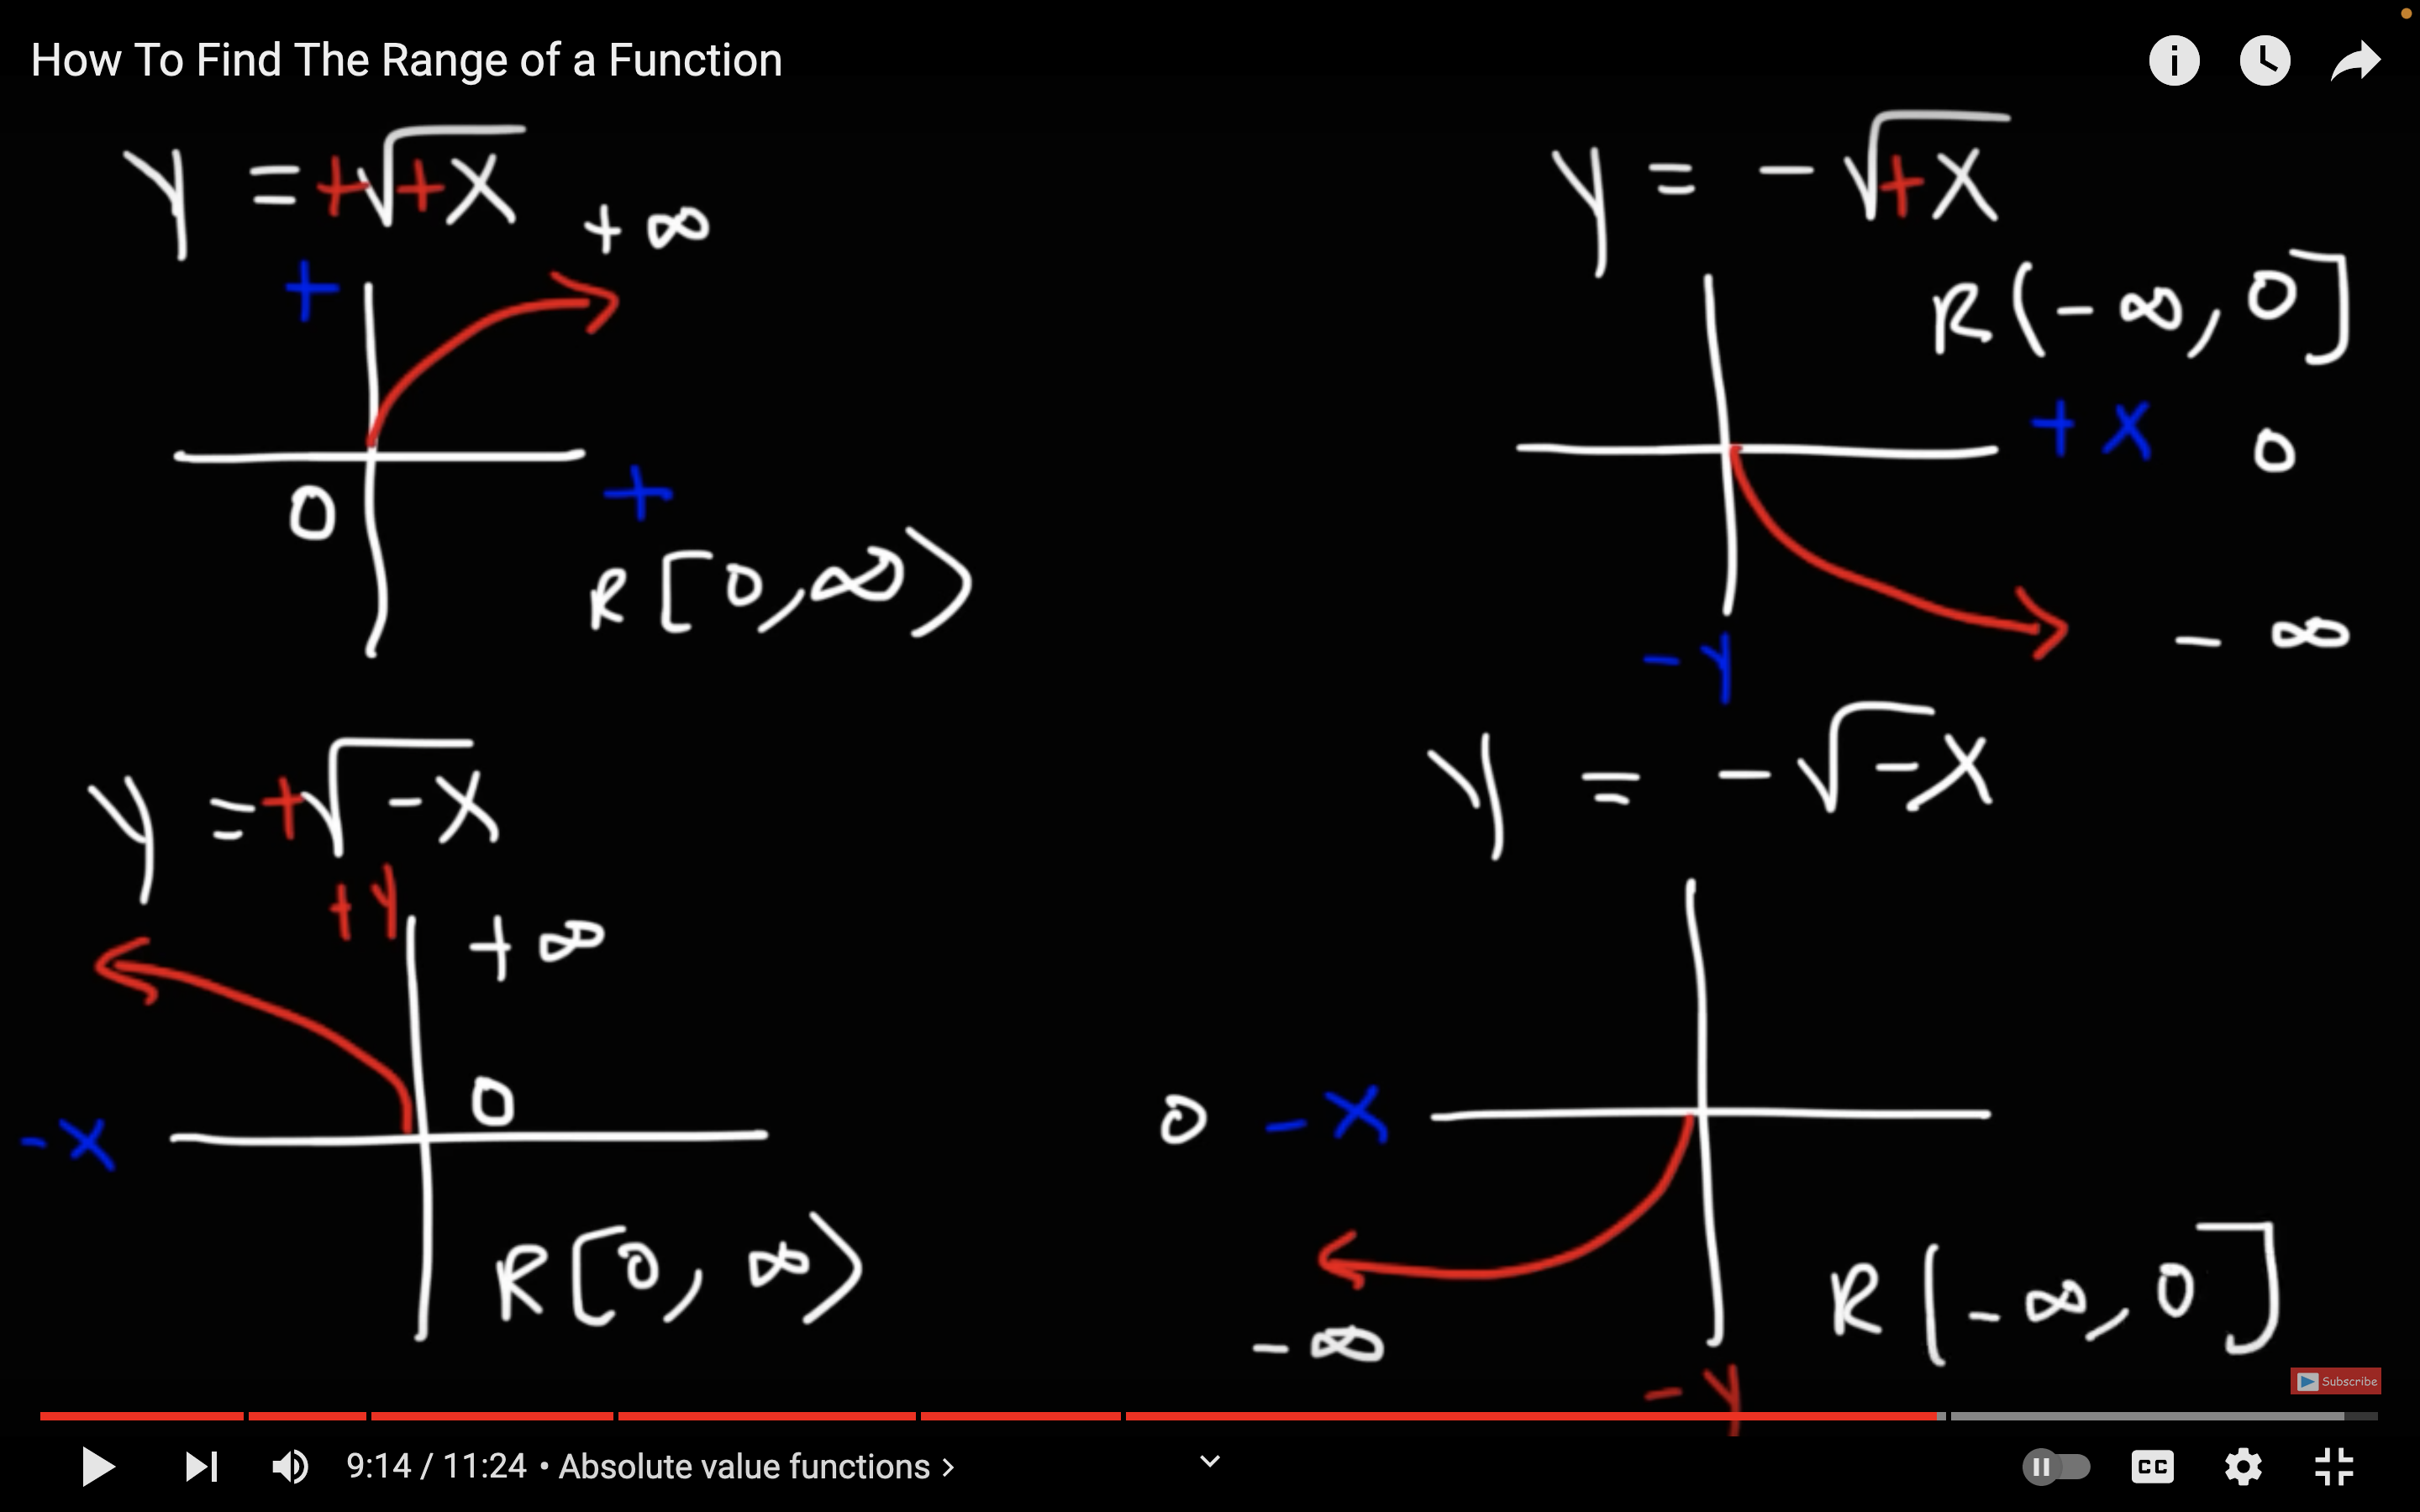 How To Find The Range of a Function
y = +√+x
+ ∞
+
0
+
R [0, ∞)
y = - √+x
R (-∞, 0]
+ x
0
- y
- ∞
y = +√-x
+y
+ ∞
0
- x
R [0, ∞)
y = - √-x
0
- x
- ∞
R (-∞, 0]
- y
Subscribe
9:14 / 11:24 • Absolute value functions >
CC